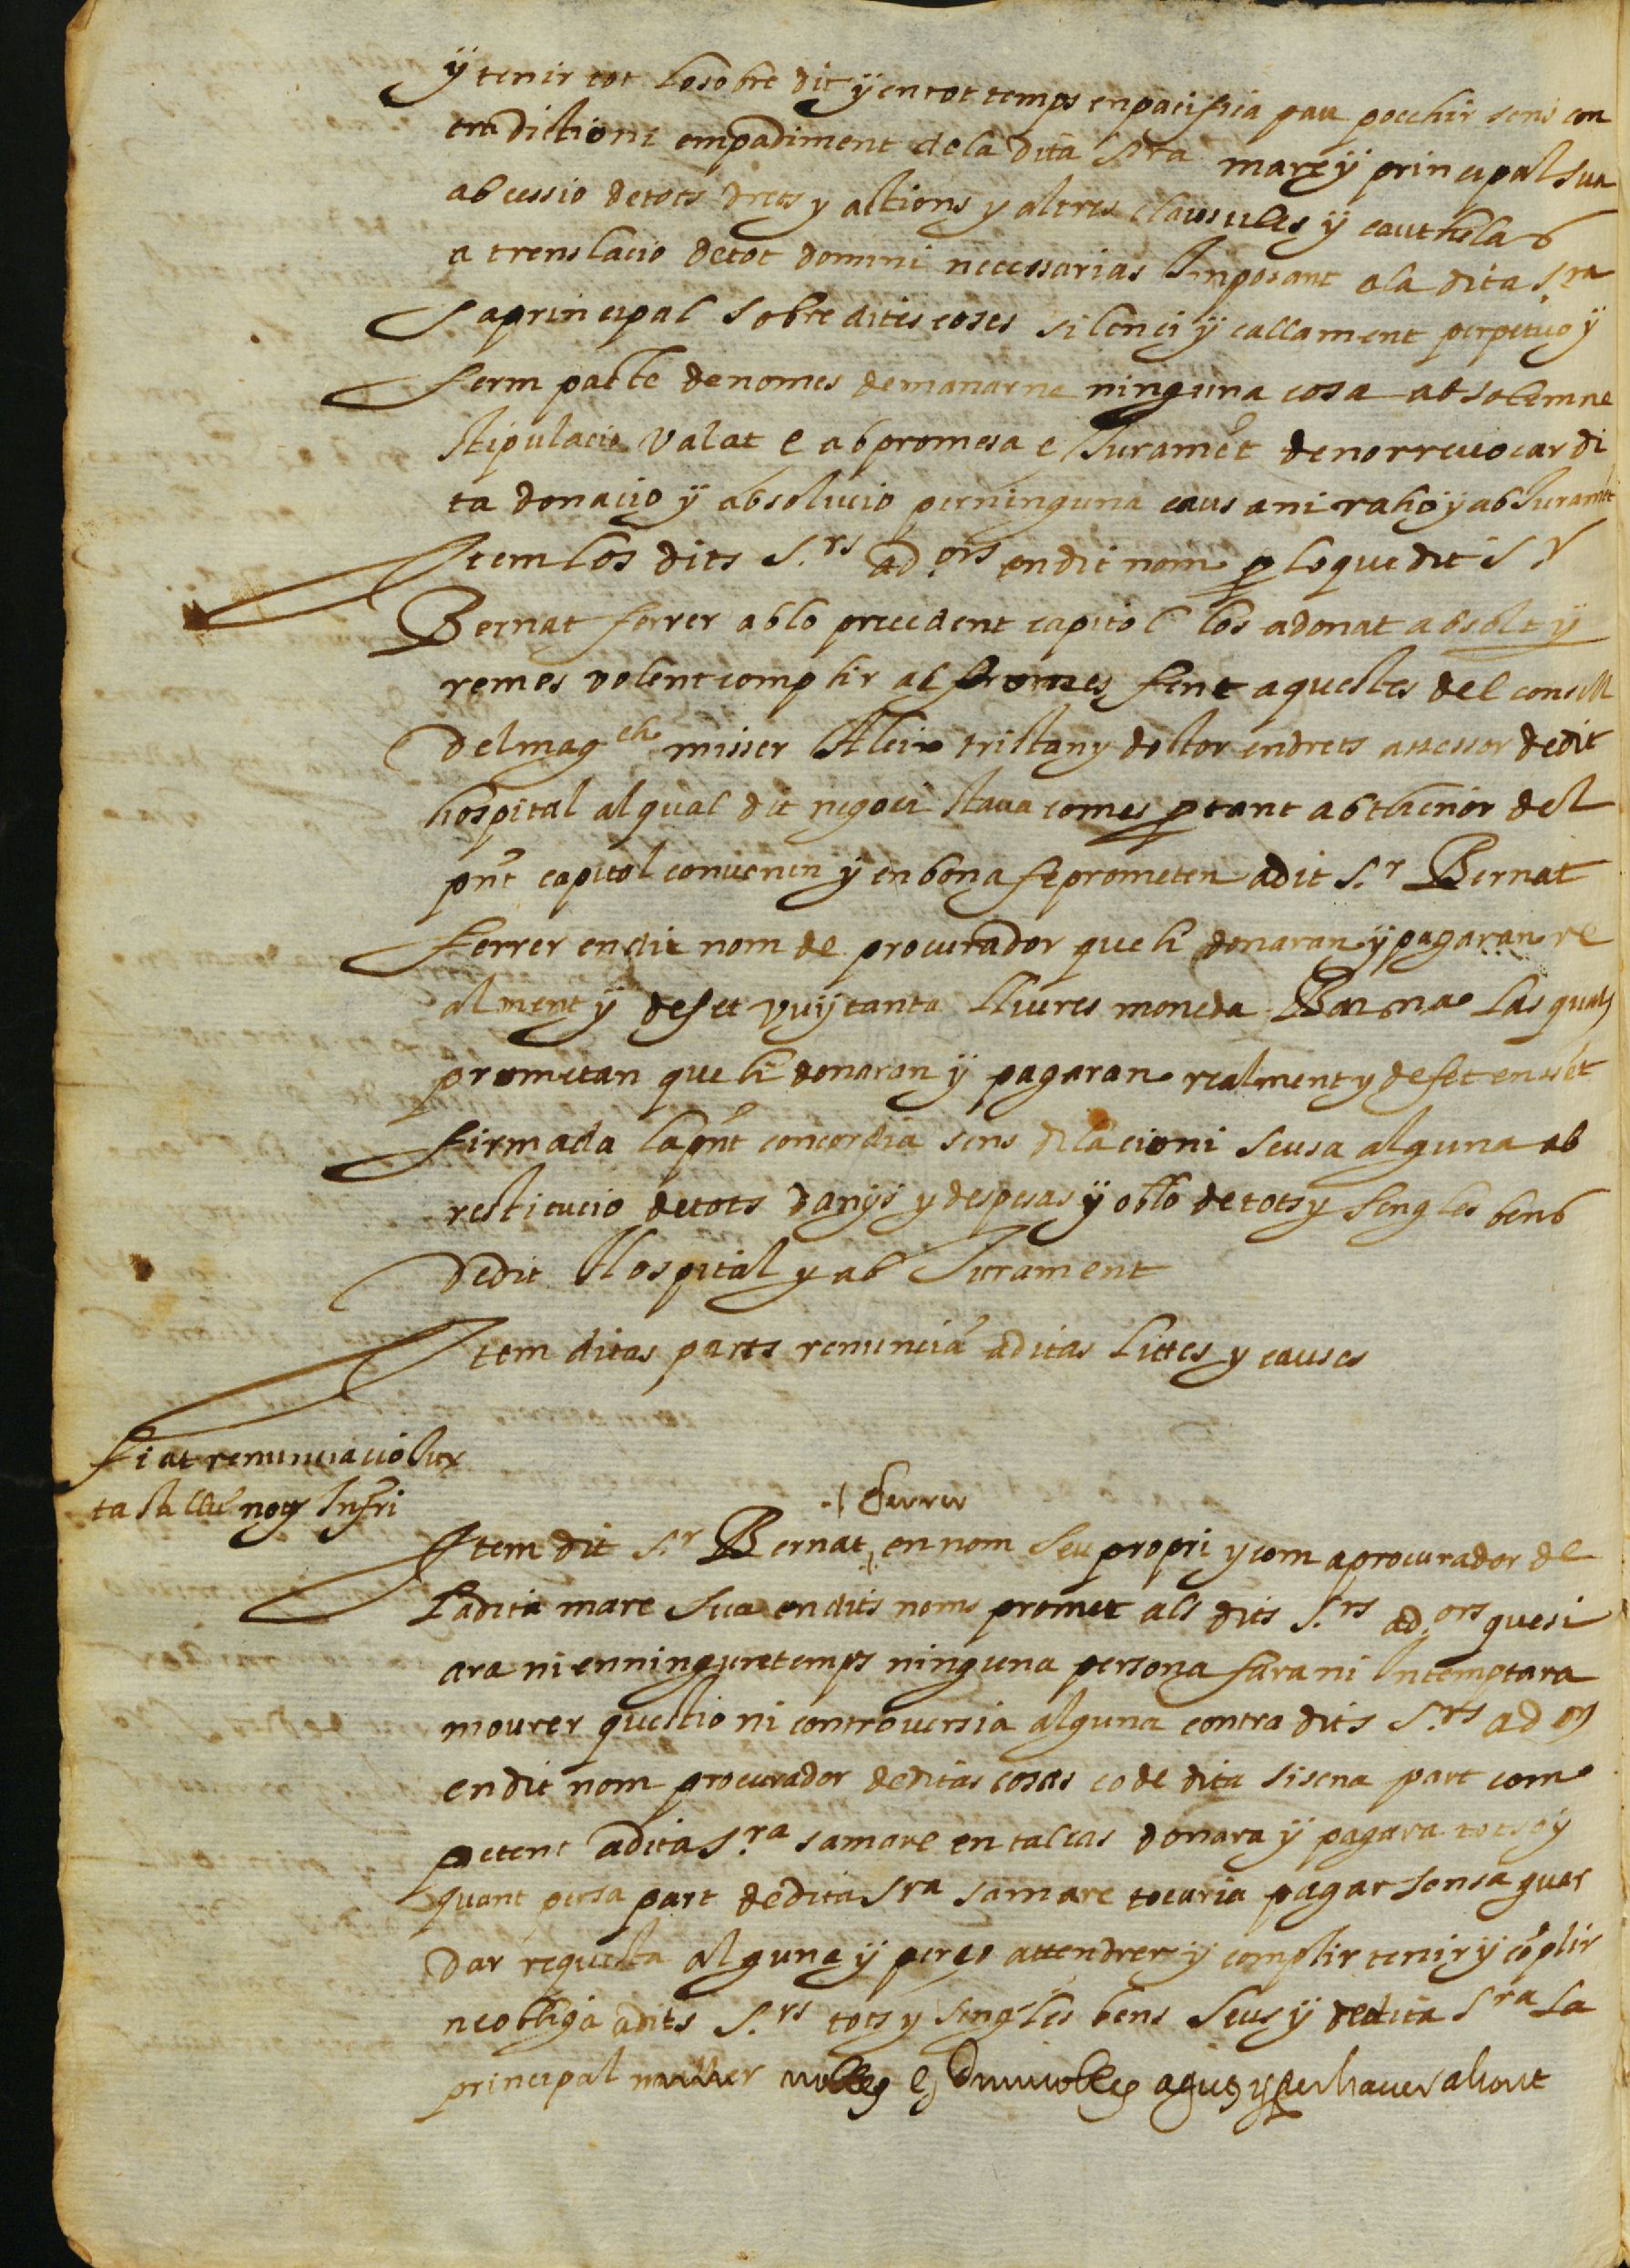 ÿ tenir tot lo sobre dit ÿ en tot temps en pacifica pau pocehir sens con
tradictio ni empadiment de la dita S.ra mare ÿ principal sua
ab cessio de tots drets y actions y altres clausules ÿ cauthelas
a translacio de tot domini necessarias Imposant a la dita S.ra
sa principal sobre dites coses silenci ÿ callament perpetuo ÿ
ferm pacte de no mes demanarne ninguna cosa ab solemne
stipulacio valat e ab promesa e Juramẽt de no rrevocar di
ta donacio ÿ absolucio per ninguna causa ni raho ÿ ab Juramẽt
Item los dits S.rs ad.ors en dit nom p lo que dit S.r
Bernat ferrer ab lo precedent capitol los a donat absolt ÿ
remes volent complir al promes fent aquestes del consell
del mag.ch misser Aleix tristany doctor en drets assessor de dit
hospital al qual dit negoci stava comes p tant ab thenor del
pñt capitol convenen ÿ en bona fe prometen a dit S.r Bernat
ferrer en dit nom de procurador que li donaran ÿ pagaran re
alment ÿ de fet vuÿtanta lliures moneda Barna las quals
prometan que li donaran ÿ pagaran realment y de fet en sẽt
firmada la pñt concordia sens dilacio ni scusa alguna ab
restitucio de tots danÿs y despesas ÿ obllo de tots y sengles bens
de dit Hospital y ab Jurament
Item ditas parts renuncia a ditas littes y causes
fiat renunciacio Jux
ta sti not Inferi
ferrer
Item dit S.r Bernat en nom seu propri y com a procurador de
la dita mare sua en dits noms promet als dits S.rs ad.ors que si
ara ni en ningun temps ninguna persona fara ni Intemptara
mourer questio ni controversia alguna contra dits S.rs ad.ors
en dit nom procurador de ditas cosas co de dita sisena part com
petent a dita S.ra sa mare en tal cas donara ÿ pagara tot so ÿ
quant per sa part de dita S.ra sa mare tocaria pagar sens aguar
dar requesta alguna ÿ per ço attendrer ÿ complir tenir ÿ cõplir
ne obliga a dits S.rs tots y sengles bens seus ÿ de dita S.ra sa
principal mulier mobles e Immobles aguts y per haver ahont